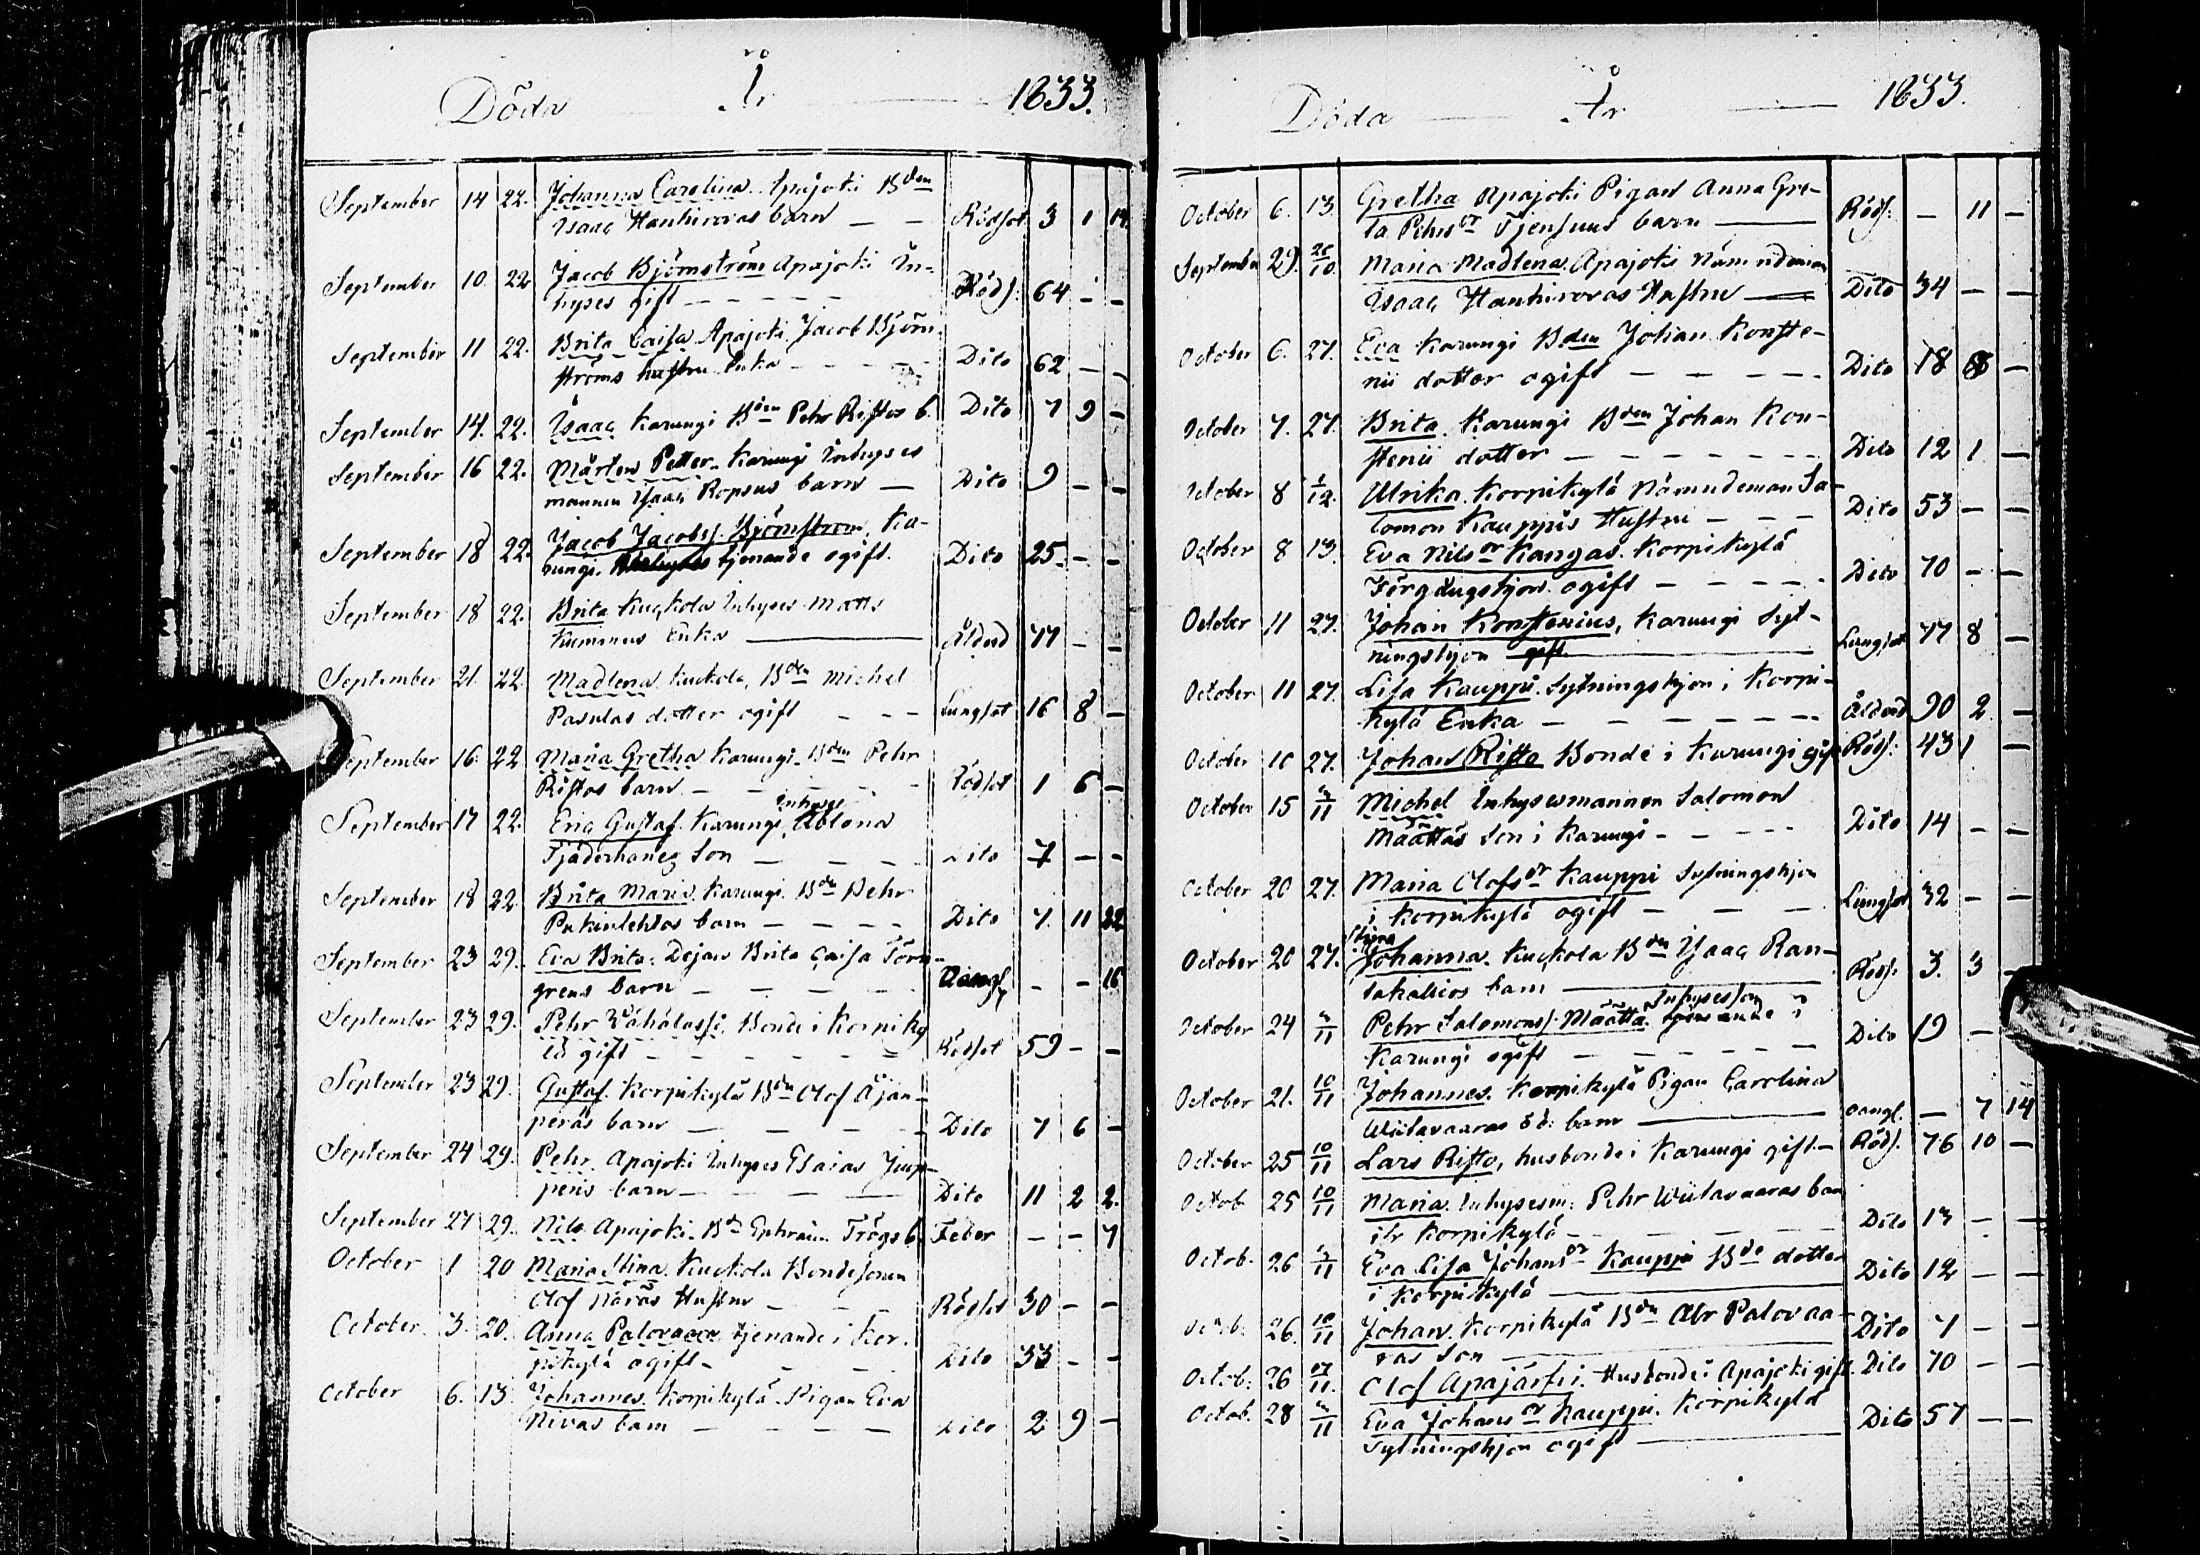 Döda År 1833.
September 14 22. Johanna Carolina. Apajoki Bden
Isaac Hanhirovas barn Rödsot 3 1 14.
September 10 22 Jacob Björnström Apajoki In-
hyses gift Röds: 64 - -
September 11 22. Brita Caisa Apajoki Jacob Björn-
ströms hustru Enka Dito 62 - -
September 14. 22. Isaac Karungi Bden Pehr Ristos b. Dito 7 9 -
September 16 22. Mårten Petter. Karungi Inhyses
mannen Isaac Ropsus barn Dito 9 - -
September 18 22. Jacob Jacobss. Björnström. Ka-
rungi. tjenande ogift. Dito 25 - -
September 18 22. Brita Kuckola Inhyses Matts
Kummus Enka Ålderd 77 - -
September 21. 22. Madlena. Kuckola, Bden Michel
Pasulas dotter ogift Lungsot 16 8 -
September 16. 22 Maria Gretha Karungi. Bden Pehr
Ristos barn Rödsot 1 6 -
September 17 22. Eric Gustaf. Karungi, Inhyses Ablona
Tjäderhanes Son Dito 7 - -
September 18 22 Brita Maria. Karungi. Bde Pehr
Pukinlehtos barn Dito 7. 11 22
September 23 29. Eva Brita. Dejan Brita Caisa Törn-
grens barn - - 16
September 23 29. Pehr Wähälassi, Bonde i Korpiky
lä gift Rödsot 59 - -
September 23 29. Gustaf. Korpikylä Bdn Olof Äjan-
peräs barn Dito 7 6 -
September 24 29. Pehr. Apajoki Inhyses Esaias Jup-
peris barn Dito 11 2 2.
September 27 29. Nils Apajoki. Bd Ephraim Trögs b. Feber - - 7
October 1 20 Maria Stina. Kuckola Bondesonen
Olof Näräs Hustru Rödsot 30 - -
October. 3. 20. Anna Palovaara tjenande i Kor-
pikylä ogift Dito 33 - -
October 6. 13. Johannes. Korpikylä Pigan Eva
Nivas barn Dito 2 9 -
Döda År 1833.
October 6. 13. Gretha Apajoki Pigan Anna Gre-
ta Pehrsdr Tjensuus barn Röds: - 11 -
September 29. 20/10 Maria Madlena. Apajoki Nämndeman
Isaac Hanhirovas Hustru Dito 34 - -
October 6. 27. Eva Karungi Bden Johan Konste-
nii dotter ogift Dito 18 8 -
October 7. 27. Brita. Karungi Bden Johan Kon-
stenii dotter Dito 12 1 -
October 8 1/12. Ulrika. Korpikylä Nämndeman Sa-
lomon Kauppis Hustru Dito 53 - -
October 8 13. Eva Nilsdr Kangas. Korpikylä
ogift Dito 70 - -
October 11 27. Johan Konstenius, Karungi Syt-
ningshjon gift Lungsot 77 8 -
October 11 27. Lisa Kauppi. Sytningshjon i Korpi-
kylä Enka Ålderd 90 2 -
October 10 27. Johan Risto Bonde i Karungi gift Röds: 43 1 -
October 15 3/11 Michel Inhysesmannen Salomon
Määttäs Son i Karungi Dito 14 - -
October 20 27. Maria Olofsdr Kauppi Sytningshjon
i Korpikylä ogift Lungsot 32 - -
October 20 27. Stina
Johanna. Kuckola Bden Isaac Ran-
takallios barn Röds: 3. 3 -
October 24 3/11 Pehr Salomonss. Määttä. Inhysesson i
Karungi ogift Dito 19 -
October 21. 10/11 Johannes. Korpikylä Pigan Carolina
Wiitavaaras oä: barn oangl. - 7 14
October 25 10/11 Lars Risto, husbonde i Karungi gift. Röds. 76 10 -
Octob 25 10/11 Maria. Inhysesm: Pehr Wiitavaaras barn
ifr Korpikylä Dito 13 - -
Octob. 26 3/11 Eva Lisa Johansdr Kauppi Bde dotter
i Korpikylä Dito 12 - -
Octob. 26. 10/11 Johan. Korpikylä Bdn Abr Palovaa-
ras Son Dito 7 - -
Octob: 26 11. Olof Apajärfvi. Husbonde i Apajoki gift. Dito 70 - -
Octob. 28 3/11 Eva Johansdr Kauppi. Korpikylä
Sytningshjon ogift Dito 57 - -